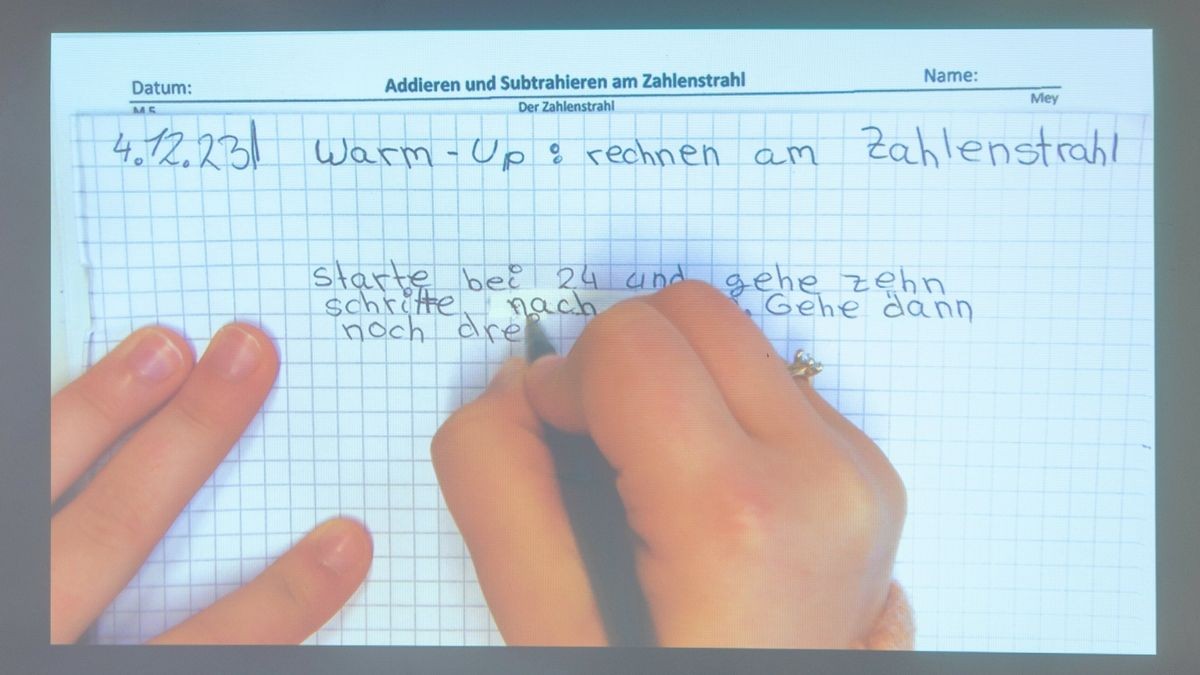 Datum: Addieren und Subtrahieren am Zahlenstrahl Name:
Der Zahlenstrahl Mey
4.12.23 Warm-Up: rechnen am Zahlenstrahl
starte bei 24 und gehe zehn
schritte nach . Gehe dann
noch drei